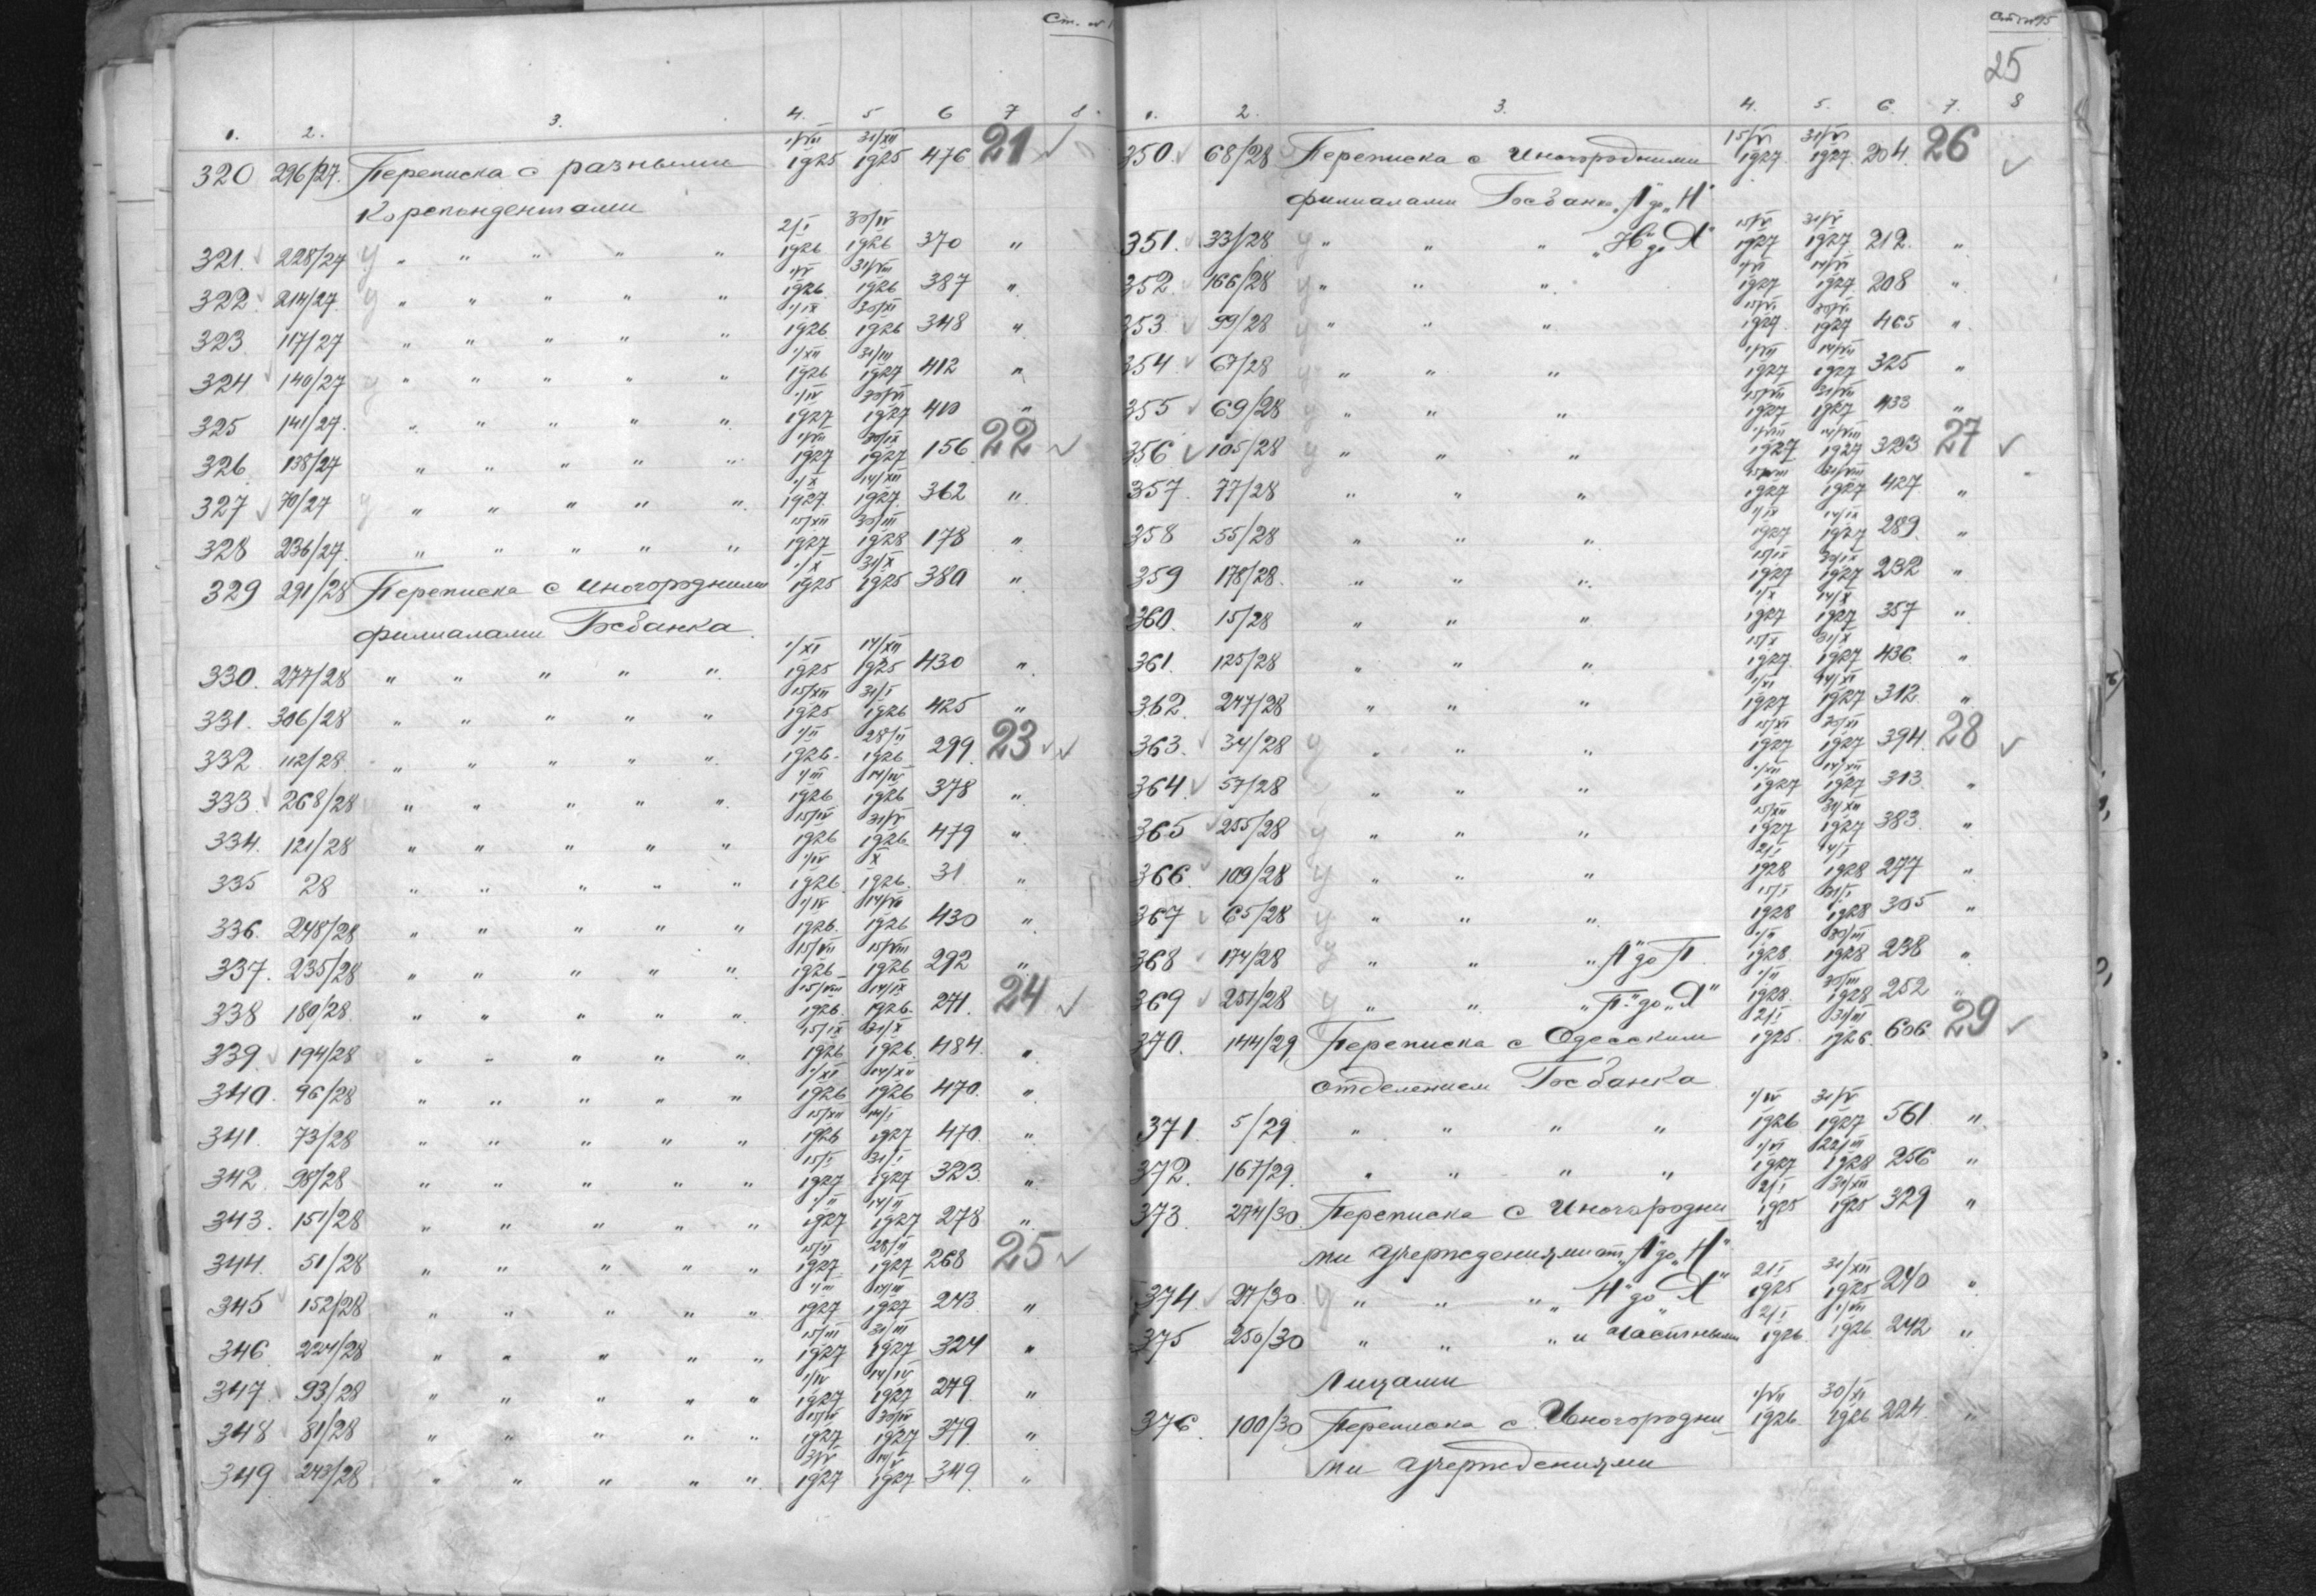 1. 2. 3. 4. 5 6 7 8.
320 296/27. Переписка с разными 1/VII 1925 31/XII 1925 476 21
Корспондентами
321. 228/27 " " " " " 2/I 1926 30/IV 1926 370 "
322 214/27. " " " " " 1/V 1926 31/VIII 1926 387 "
323 117/27 " " " " " 1/IX 1926 30/XI 1926 348 "
324 140/27 " " " " " 1/XII 1926 31/III 1927 412 "
325 141/27. " " " " " 1/IV 1927 30/VI 1927 410 "
326 138/27 " " " " " 1/VII 1927 30/IX 1927 156 22
327 70/27 " " " " " 1/X 1927. 14/XII 1927. 362 "
328 236/27. " " " " " 15/XII 1927 30/III 1928 178 "
329 291/28 Переписка с иногородними 1/X 1925 31/X 1925 380 "
филиалами Госбанка.
330. 277/28 " " " " " 1/XI 1925 14/XII 1925 430 "
331. 306/28 " " " " " 15/XII 1925 31/I 1926 425 "
332 112/28. " " " " " 1/II 1926. 28/II 1926 299. 23
333. 268/28 " " " " " 1/III 1926 14/IV 1926 378 "
334. 121/28 " " " " " 15/IV 1926 31/V 1926. 479 "
335 28 " " " " " 1/IV 1926. X 1926. 31 "
336. 248/28 " " " " " 1926. 1926 430 "
337. 235/28 " " " " " 15/VII 1926 15/VIII 1926 292 "
338 180/28. " " " " " 15/VIII 1926. 14/IX 1926. 271. 24
339. 194/28 " " " " " 15/IX 1926 31/X 1926. 484. "
340. 96/28 " " " " " 1/XI 1926 14/XII 1926 470. "
341. 73/28 " " " " " 15/XII 1926 14/I 1927 470. "
342. 98/28 " " " " " 15/I 1927 31/I 1927 323. "
343. 151/28 " " " " " 1/II 1927 14/II 1927 278 "
344. 51/28 " " " " " 15/II 1927 28/II 1927 268 25
345 152/28 " " " " " 1/III 1927 14/III 1927 243. "
346. 224/28 " " " " " 15/III 1927 31/III 1927 324 "
347. 93/28 " " " " " 1/IV 1927 14/IV 1927 279. "
348 81/28 " " " " " 15/IV 1927 30/IV 1927 379. "
349. 243/28 " " " " " 3/V 1927 14/V 1927 349. "
25
1. 2. 3. 4. 5. 6. 7. 8
350. 68/28 Переписка с Иногородними 15/V 1927. 31/V 1927. 204. 26
филиалами Госбанк. „А" до „Н"
351. 33/28 " " " „Н" до „Я" 15/V 1927 31/V 1927. 212. "
352. 166/28 " " " 1/VI 1927 14/VI 1927. 208 "
353. 99/28 " " " 15/VI 1927. 30/VI 1927 465 "
354. 67/28 " " " 1/VII 1927 14/VII 1927 325 "
355 69/28 " " " 15/VII 1927 31/VII 1927 433 "
356 105/28 " " " 1/VIII 1927 14/VIII 1927 323 27
357. 77/28 " " " 15/VIII 1927 31/VIII 1927 427. "
358 55/28 " " " 1/IX 1927 14/IX 1927 289. "
359 178/28. " " " 15/IX 1927 30/IX 1927 232 "
360. 15/28 " " " 1/X 1927 14/X 1927 357 "
361. 125/28 " " " 15/X 1927. 31/X 1927 436 "
362. 247/28 " " " 1/XI 1927 14/XI 1927 312. "
363. 34/28 " " " 15/XI 1927 30/XI 1927 394. 28
364. 57/28 " " " 1/XII 1927 14/XII 1927 313. "
365 255/28 " " " 15/XII 1927. 31/XII 1927 383. "
366. 109/28 " " " 2/I 1928 14/I 1928 277 "
367 65/28 " " " 15/I 1928 31/I 1928 305 "
368 174/28 " " „А" до П. 1/II 1928. 30/III 1928 238 "
369 251/28 " " „П." до „Я" 1/II 1928. 30/III 1928 252 "
370. 144/29 Переписка с Одесским 2/I 1925. 31/III 1926. 606. 29
отделением Госбанка
371. 5/29. " " " " 1/IV 1926 31/V 1927 561. "
372. 167/29. " " " " 1/VI 1927 22/III 1928 256 "
373. 274/30. Переписка с Иногородни- 2/I 1925 31/XII 1925 329 "
ми учерждениями от „А" до „Н"
374. 27/30 " " " „Н" до „Я" 2/I 1925 31/XII 1925 240 "
375 250/30 " " " и частными 2/I 1926. 1/VII 1926 242 "
лицами
376. 100/30 Переписка с. Иногородни- 1/VII 1926. 30/XI 1926 224. "
ми учерждениями